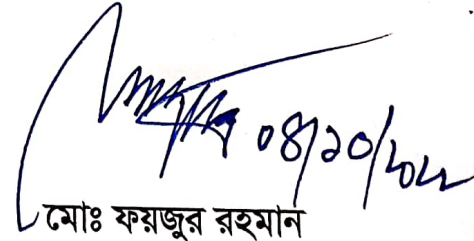 ০৪/১০/২০২২
মোঃ ফয়জুর রহমান